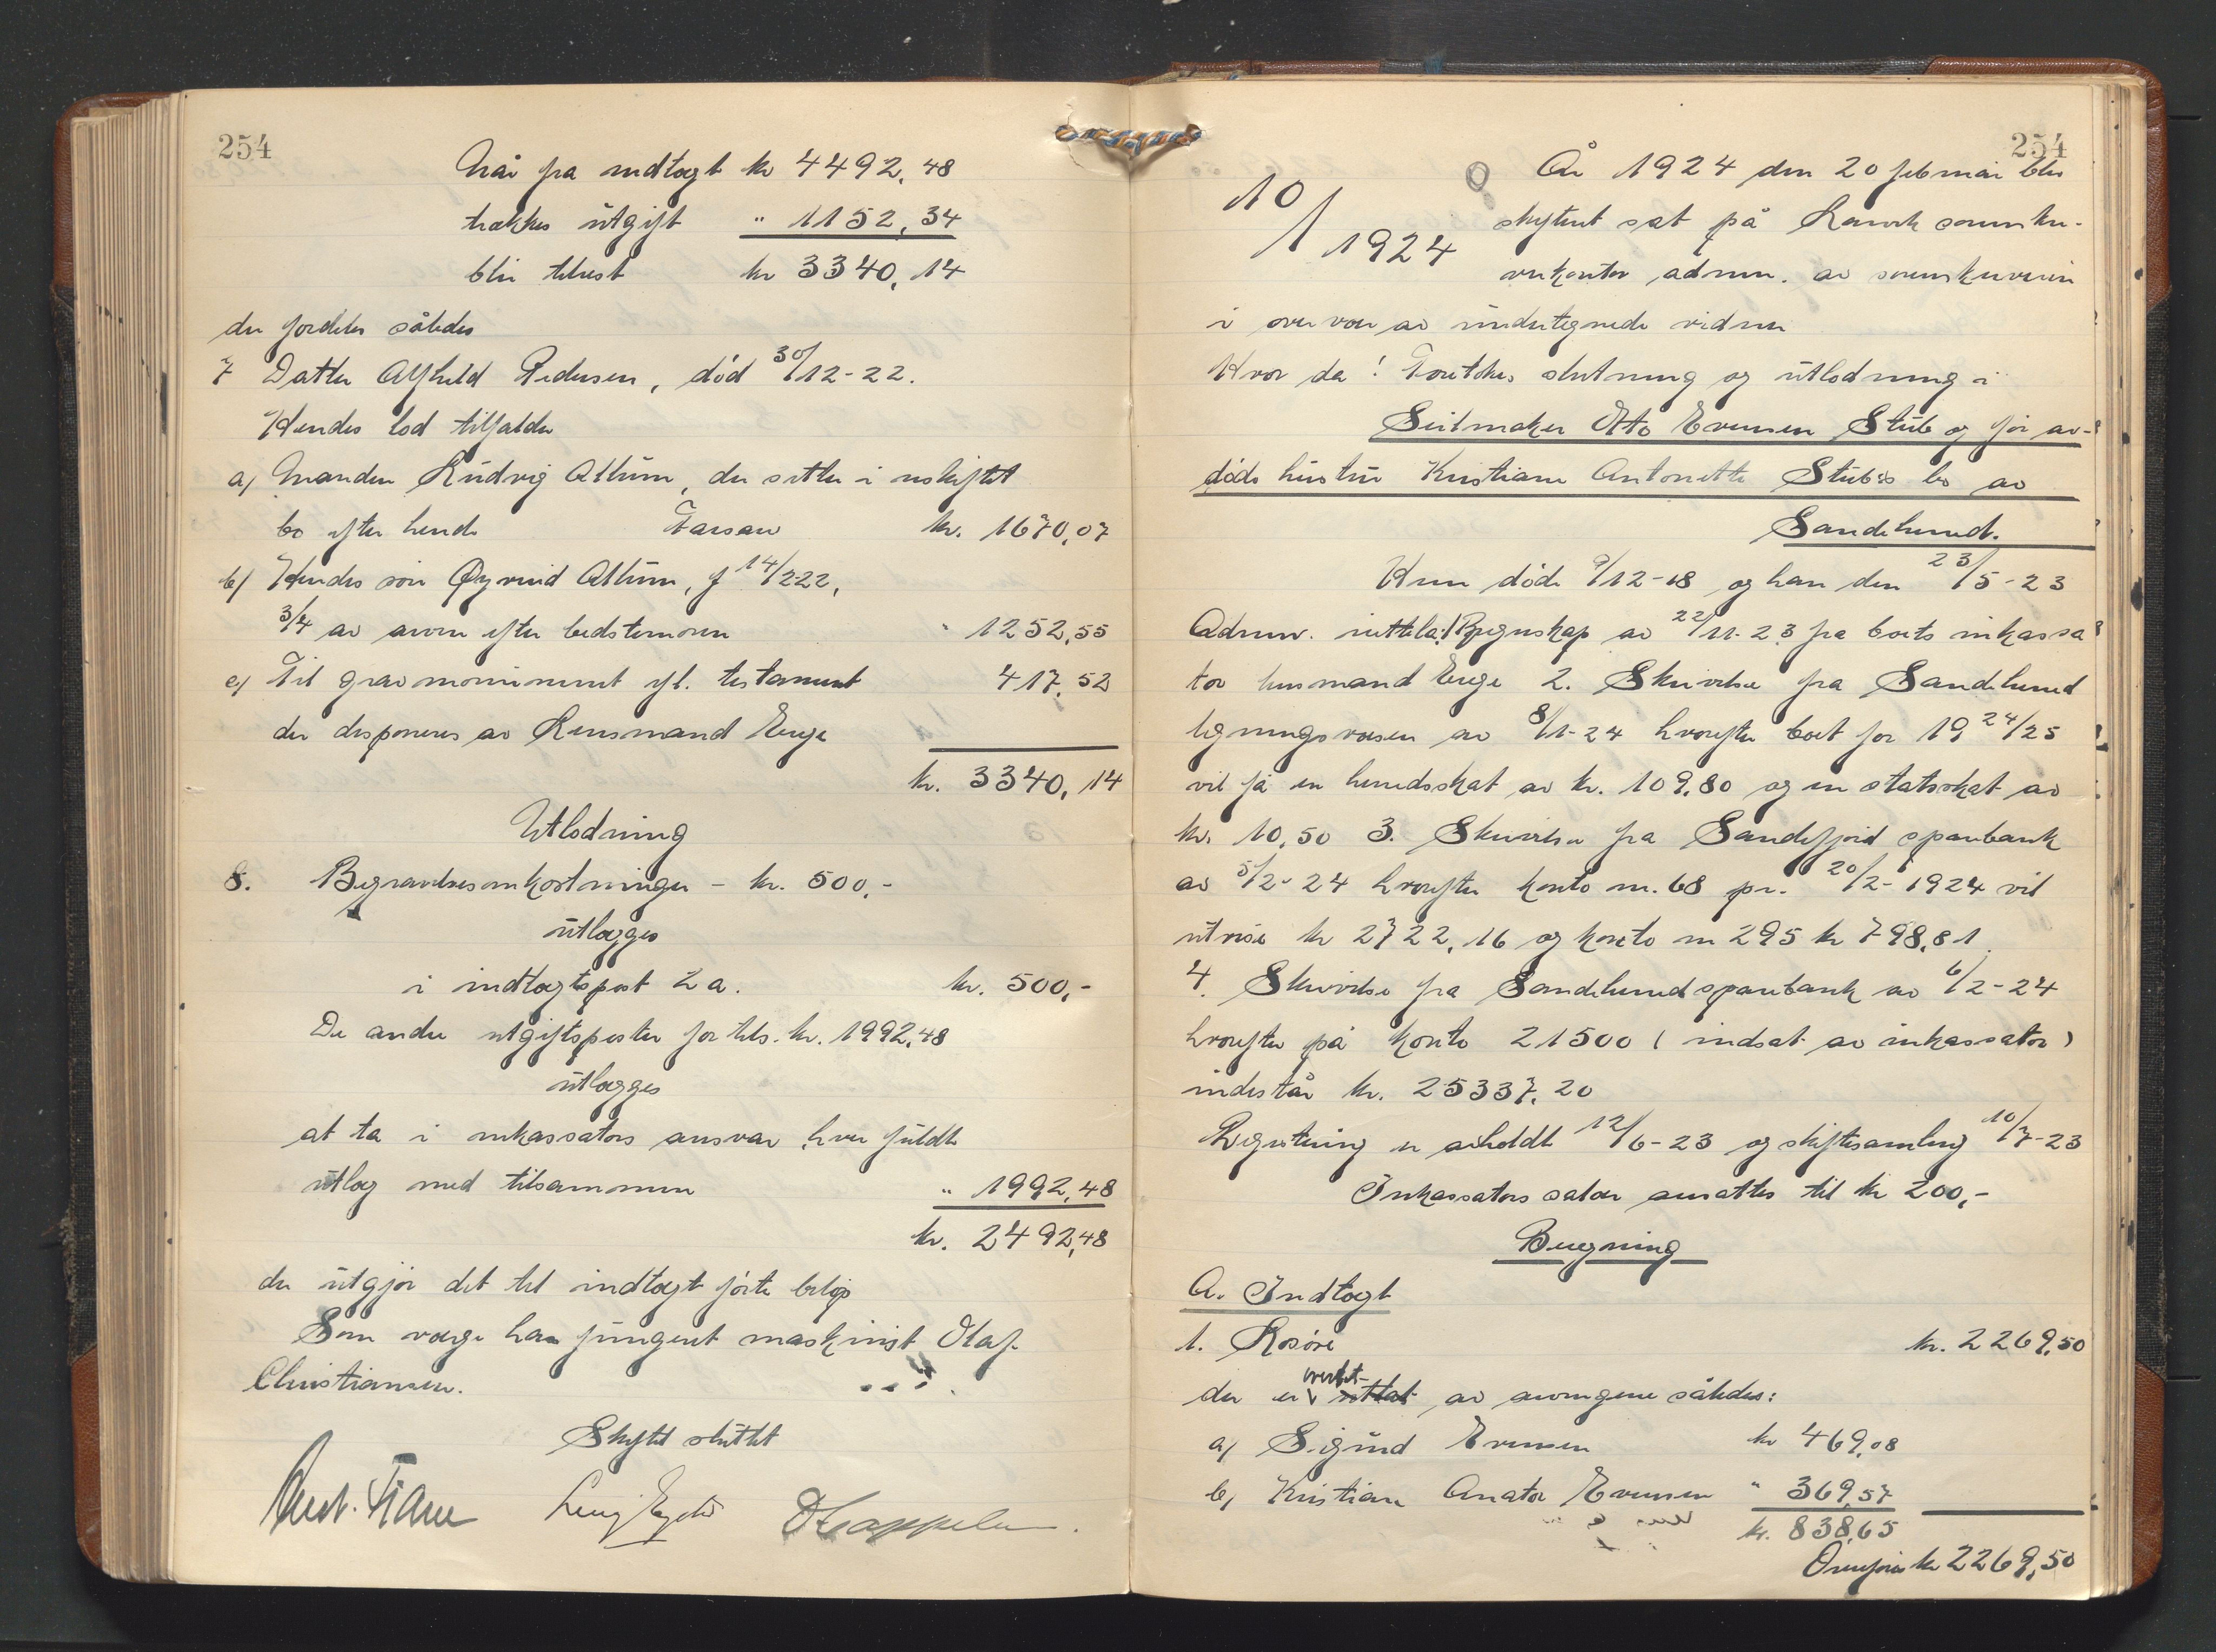 254
Når fra indtægt kr 4492,48
trækkes utgift " 1152,34
blir tilrest kr 3340,14
der fordeles således
7 Datter Alfhild Pedersen, død 30/12-22.
Hendes lod tilfalder
a) Manden Ludvig Allum, der sitter i uskiftet
bo efter hende Farsarv kr. 1670,07
b) Hendes søn Øyvind Allum, f 14/2 22,
3/4 av arven efter bedstemoren " 1252,55
c) Til gravmonument ifl. testament 417,52
der disponeres av Lensmand Enge
kr. 3340,14
Utlodning
8. Begravelsesomkostninger - kr. 500,-
utlægges
i indtægtspost 2 a. kr. 500,-
De andre utgiftsposter for tils. kr. 1992,48
utlægges
at ta i inkassators ansvar hver fuldt
utlæg med tilsammen " 1992,48
kr. 2492,48
der utgjør det til indtægt førte beløp
Som værge har fungert maskinist Olaf
Christiansen.
Skiftet sluttet
254
10/1924
År 1924 den 20 februar blev
skifteret sat på Larvik sorenskri-
verkontor admin. av sorenskriveren
i overvær av undertegnede vidner
Hvor da! Foretokes slutning og utlodning i
Seilmaker Otto Evensen Stub og før av-
døde hustru Kristiane Antonette Stub's bo av
Sandeherred.
Hun døde 9/12-18 og han den 23/5-23
Admin. fremla: 1 Regnskap av 22/11-23 fra boets inkassa
tor lensmand Enge 2. Skrivelse fra Sandeherred
ligningsvæsen av 8/1-24 hvorefter boet for 19 24/25
vil få en herredsskat av kr. 109,80 og en statsskat av
kr. 10,50 3. Skrivelse fra Sandefjord sparebank
av 5/2-24 hvorefter konto nr. 68 pr. 20/2-1924 vil
utvise kr 2722,16 og konto nr 295 kr 798,81
4. Skrivelse fra Sandeherred sparebank av 6/2-24
hvorefter på konto 21500 (indsat av inkassator)
indestår kr. 25337,20
Registrering er avholdt 12/6-23 og skiftesamling 10/7-23
Inkassators salær ansattes til kr 200,-
Beregning
A. Indtægt
1. Løsøre kr. 2269,50
der er overtat av arvingene således:
a) Sigurd Evensen kr 469,08
b) Kristian Anator Evensen " 369,57
kr. 838,65
Overføres kr 2269,50